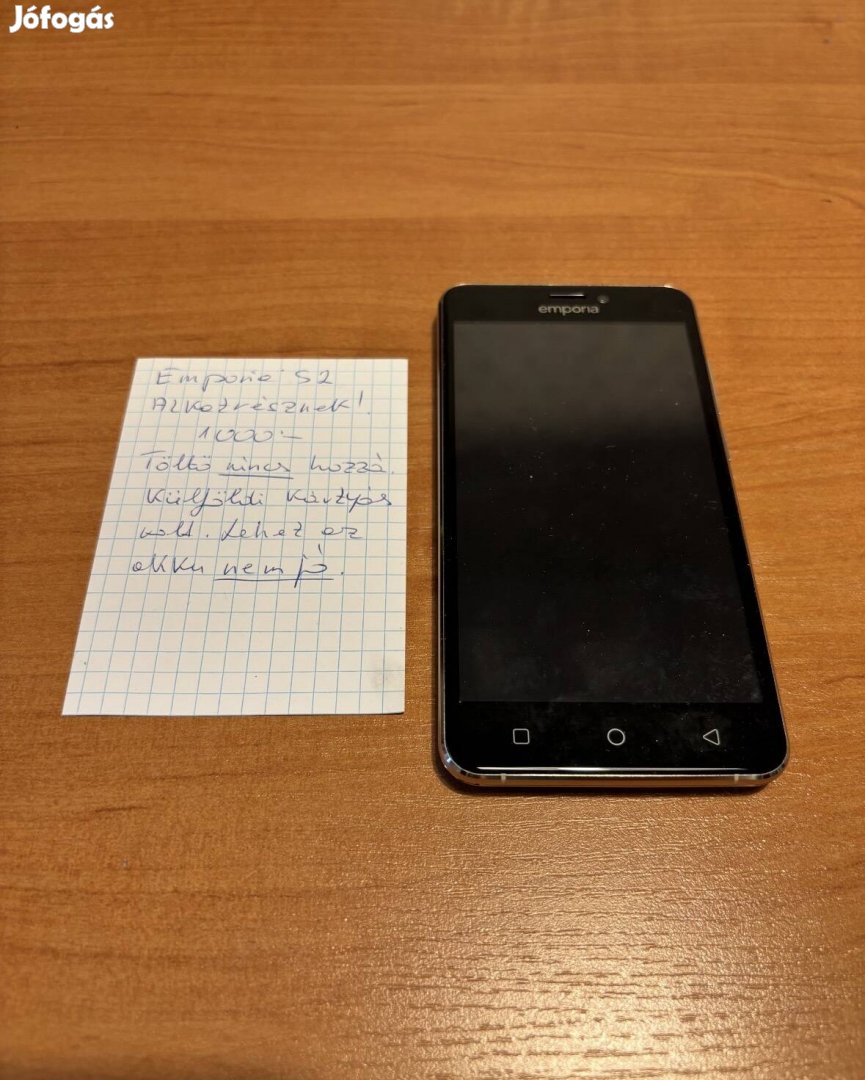 Jófogás
emporia
Emporia S2
Alkatrésznek!
1000.-
Töltő nincs hozzá.
Külföldi kártyás
volt. Lehet az
akku nem jó.